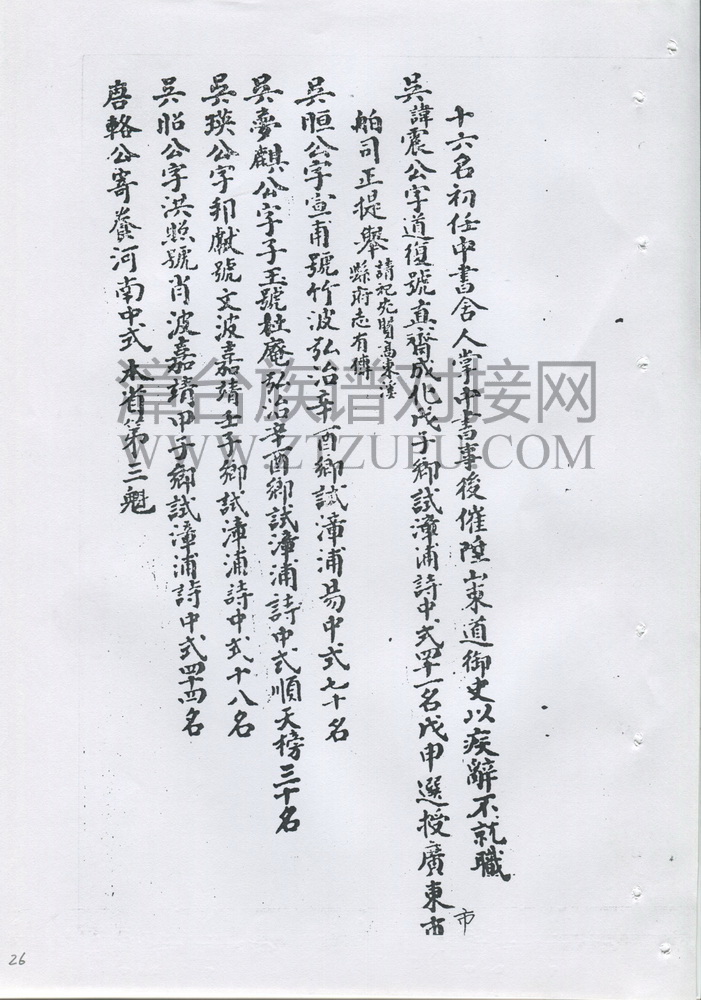 十六名初任中書舍人掌中書事後催陞山東道御史以疾辭不就職
吳諱震公字道復號直齋成化戊子鄉試漳浦詩中式四十一名戊申選授廣東市
市
舶司正提舉
請祀先賢高東溪
縣府志有傳
吳晅公字宣甫號竹波弘治辛酉鄉試漳浦易中式七十名
吳夢麒公字子玉號杜庵弘治辛酉鄉試漳浦詩中式順天榜三十名
吳瑛公字邦獻號文波嘉靖壬子鄉試漳浦詩中式十八名
吳昭公字洪照號肖波嘉靖甲子鄉試漳浦詩中式四十四名
唐輅公寄養河南中式本省第三魁
漳台族谱对接网
WWW.ZTZUPU.COM
26